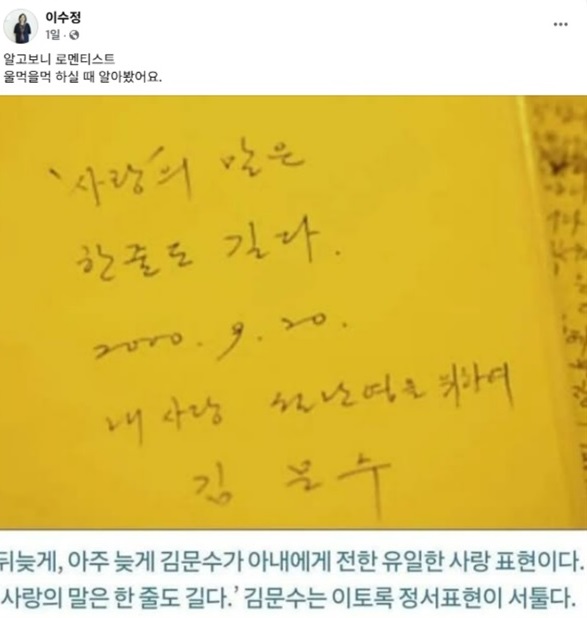 이수정
1일 ·
알고보니 로멘티스트
울먹을먹 하실 때 알아봤어요.
'사랑'의 말은
한줄도 길다.
2000. 9. 20.
내 사랑 설난영을 위하여
김 문 수
뒤늦게, 아주 늦게 김문수가 아내에게 전한 유일한 사랑 표현이다.
사랑의 말은 한 줄도 길다.’ 김문수는 이토록 정서표현이 서툴다.